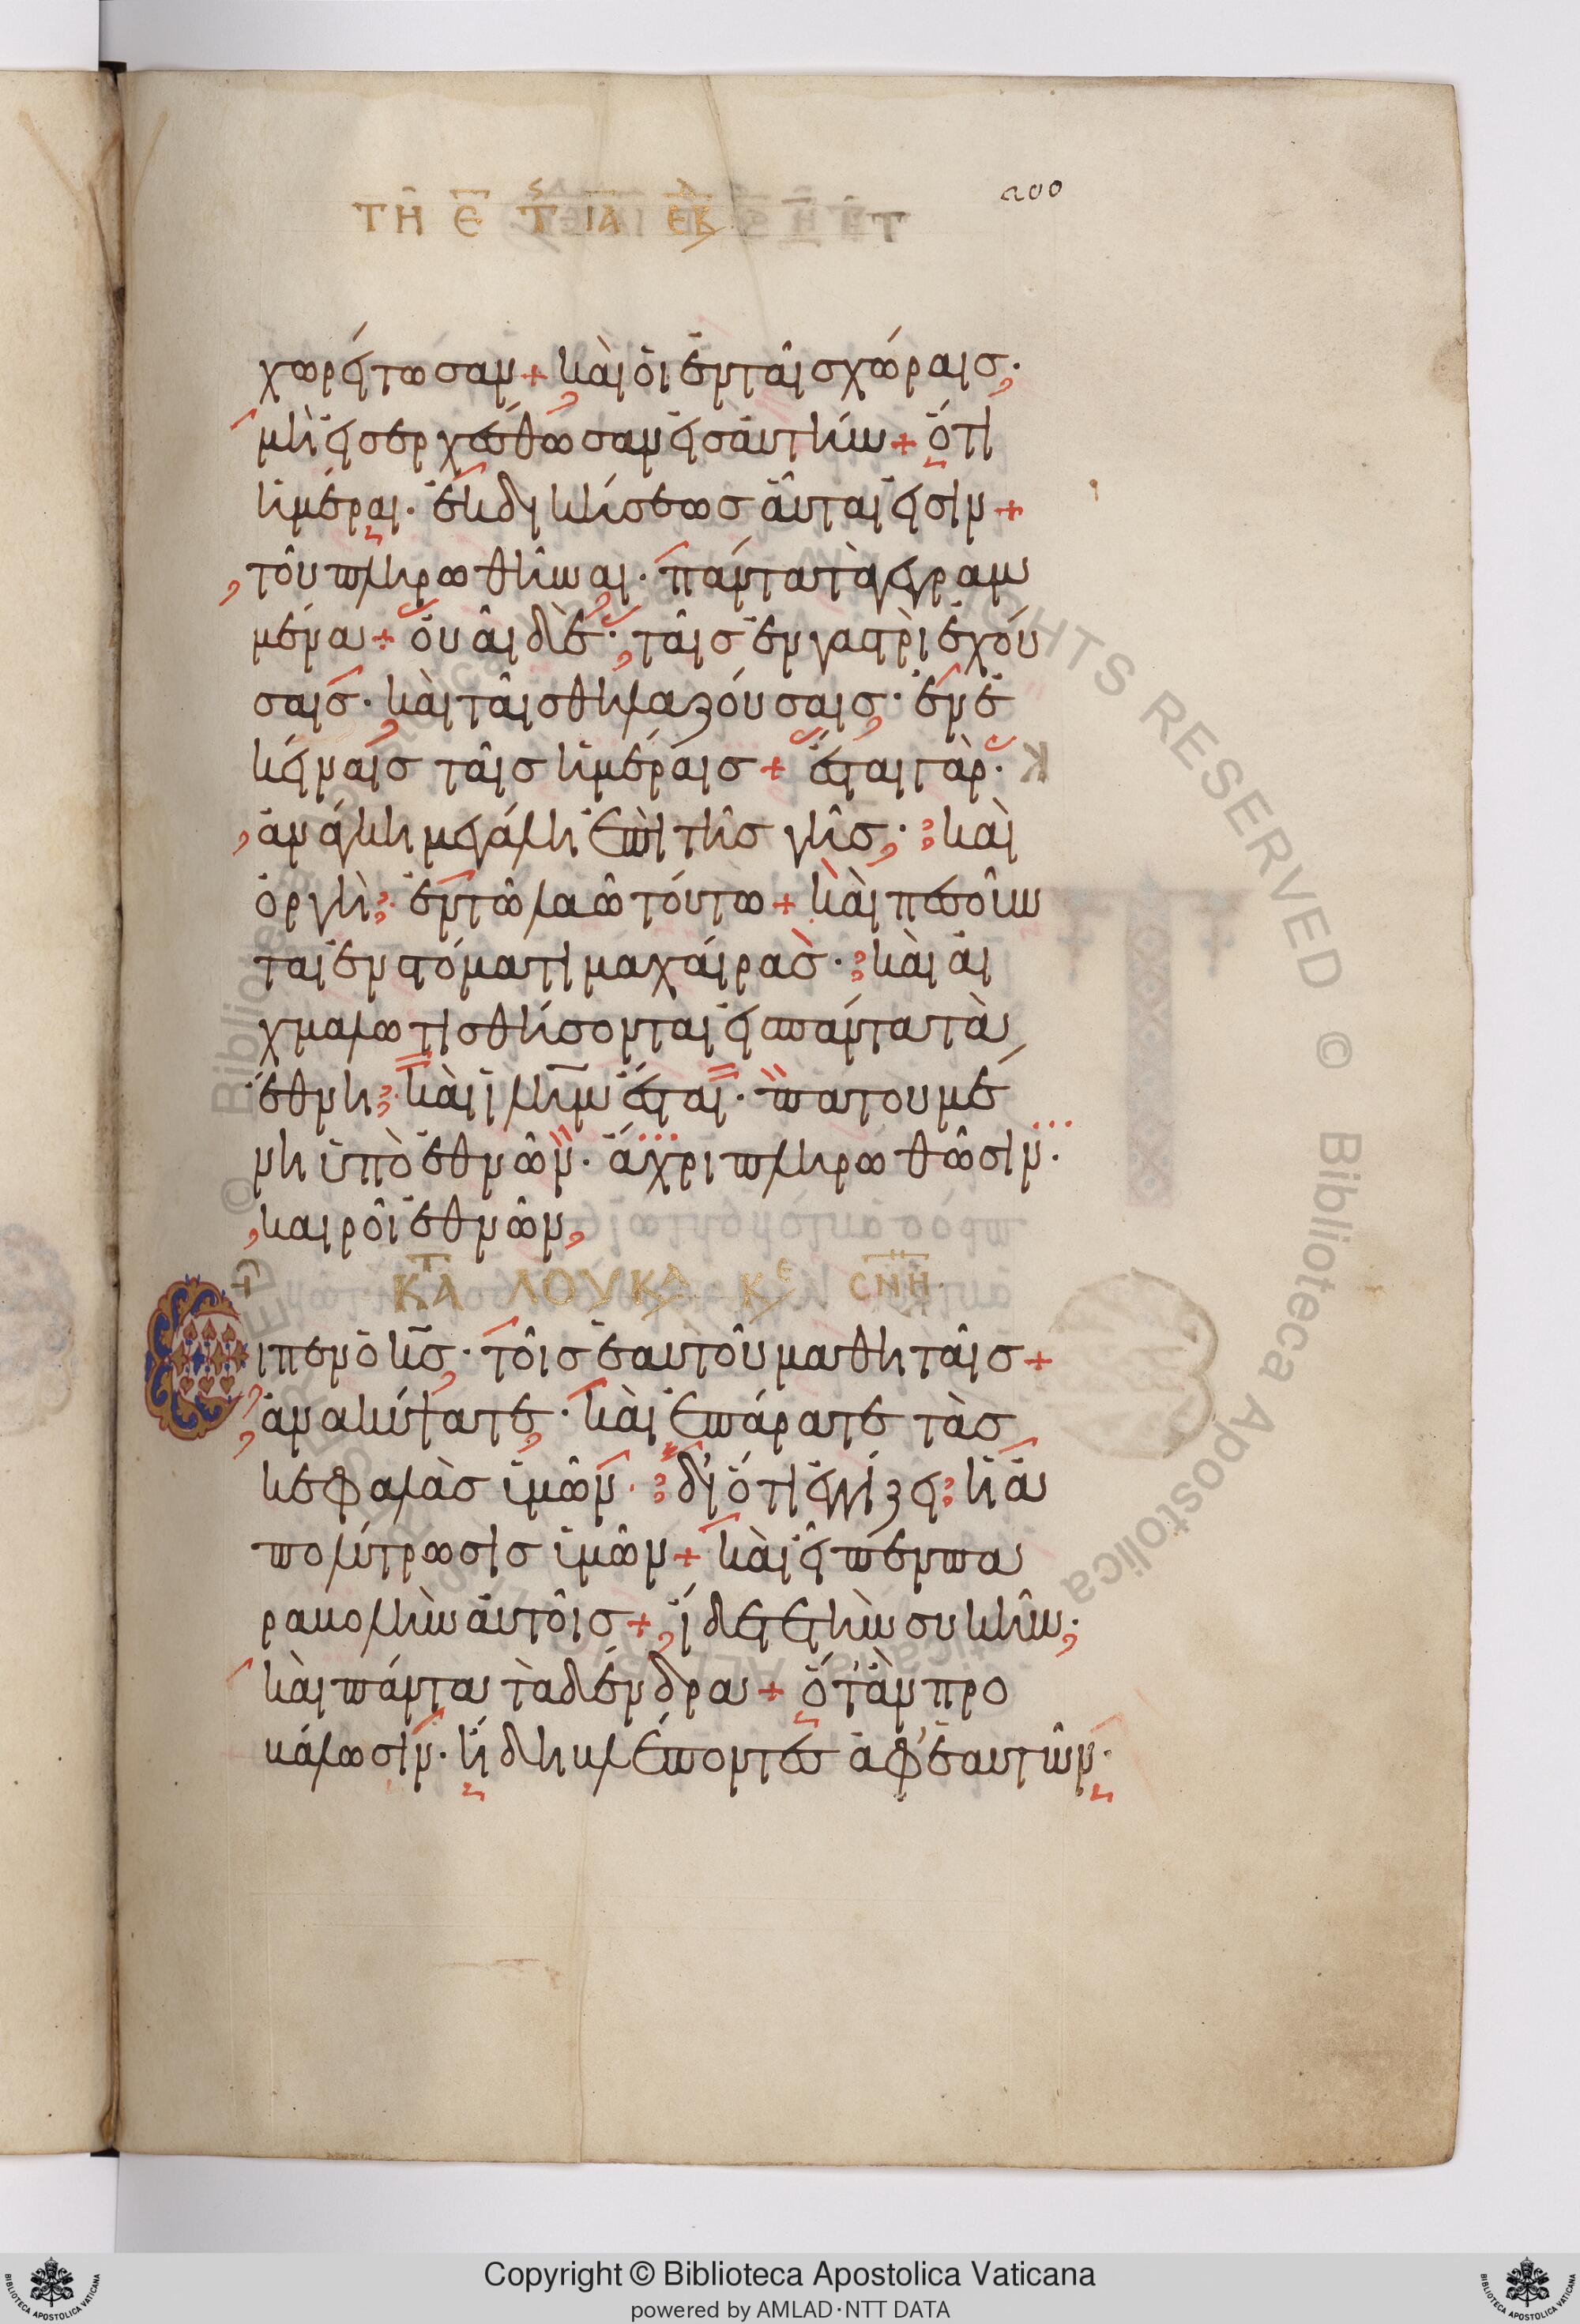 200
ΤΗ Ε ΙΑ ΕΒ
χωρείτωσαν + καὶ οἱ ἐν ταῖς χώραις·
μὴ εἰσερχέσθωσαν εἰς αὐτήν + ὅτι
ἡμέραι· ἐκδικήσεως αὗται εἰσὶν +
τοῦ πληρωθῆναι· πάντα τὰ γεγραμ
μένα + οὐαὶ δὲ· ταῖς ἐν γαστρὶ ἐχού
σαις· καὶ ταῖς θηλαζούσαις· ἐν ἐ
κείναις ταῖς ἡμέραις + ἔσται γὰρ·
ἀνάγκη μεγάλη ἐπὶ τῆς γῆς· καὶ
ὀργὴ· ἐν τῶ λαῶ τούτω + καὶ πεσοῦν
ται ἐν στόματι μαχαίρας· καὶ αἰ
χμαλωτισθήσονται εἰς πάντα τὰ
ἔθνη· καὶ ἰλὴμ ἔσται· πατουμέ
νη ὑπὸ ἐθνῶν· ἄχρι πληρωθῶσιν·
καιροὶ ἐθνῶν
ΚΤΑ ΛΟΥΚΑ ΚΕ ΣΝΗ
Εἶπεν ὁ κς· τοῖς ἑαυτοῦ μαθηταῖς +
ἀνακύψατε· καὶ ἐπάρατε τὰς
κεφαλὰς ὑμῶν· διότι ἐγγίζει· ἡ ἀ
πολύτρωσις ὑμῶν + καὶ εἶπεν πα
ραβολὴν αὐτοῖς + ἴδετε τὴν συκῆν·
καὶ πάντα τὰ δένδρα + ὅτ' ἂν προ
βάλωσιν· ἤδη βλέποντες ἀφ' ἑαυτῶν·
Copyright © Biblioteca Apostolica Vaticana
powered by AMLAD·NTT DATA